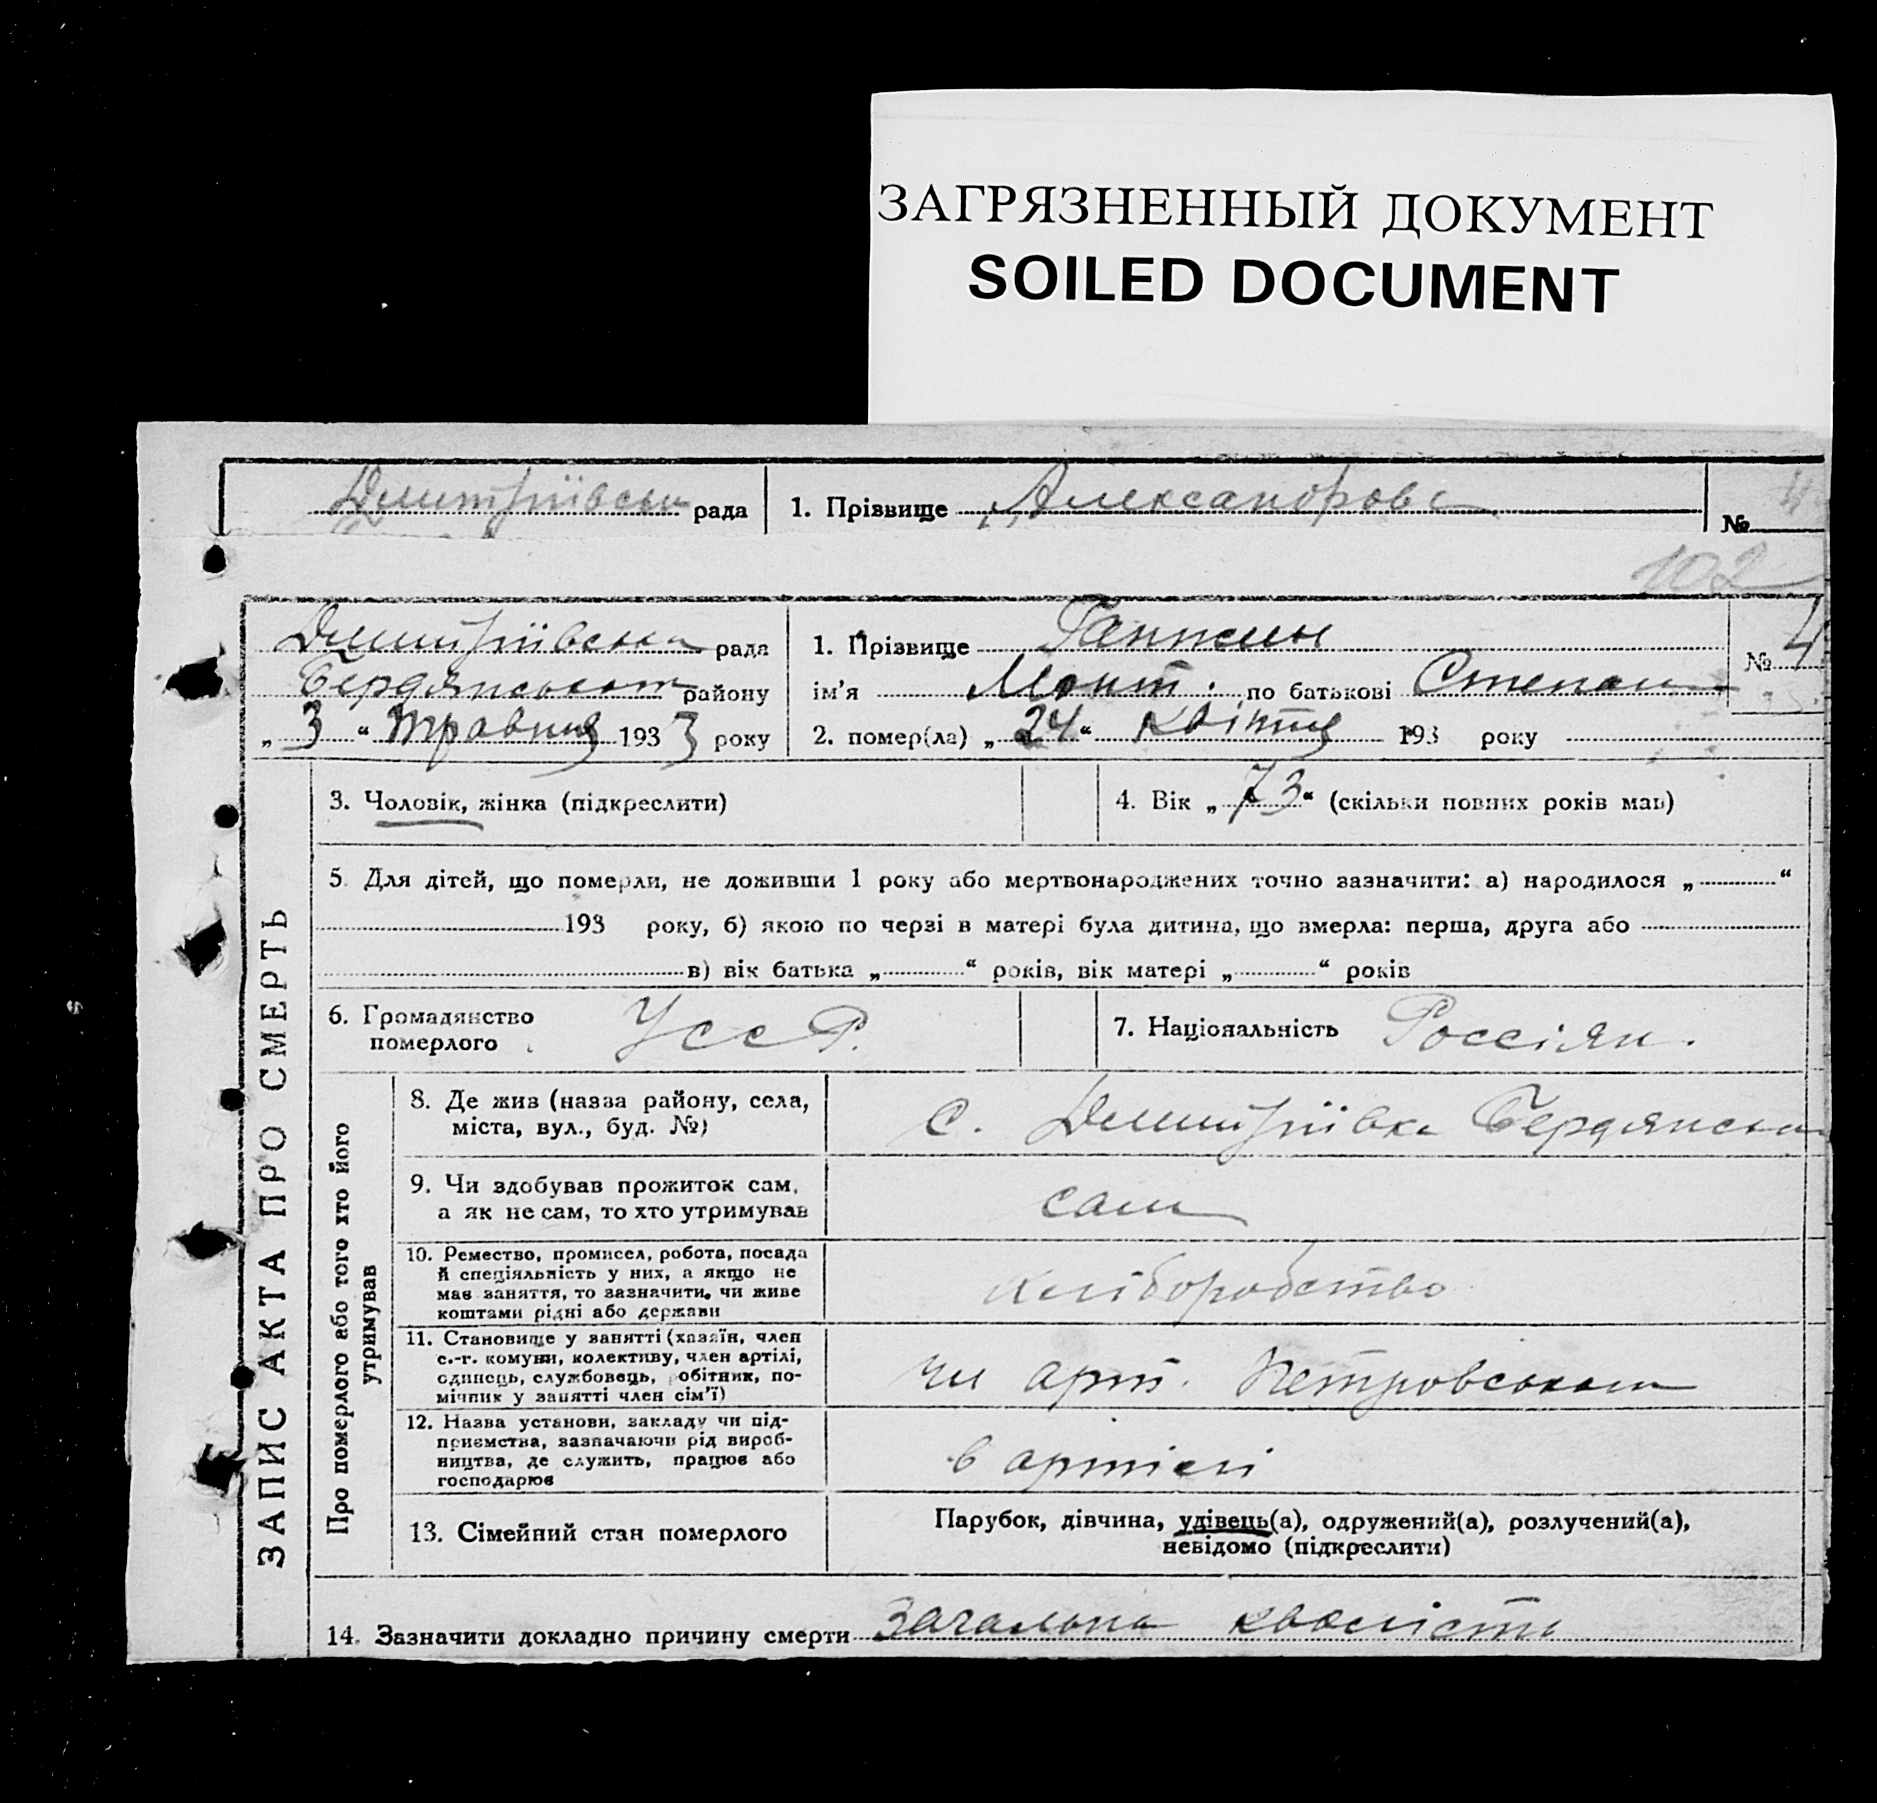 ЗАГРЯЗНЕННЫЙ ДОКУМЕНТ
SOILED DOCUMENT
Дмитріївська рада
1. Прізвище Александрова
№
102
Дмитріївська рада
1. Прізвище
№ 4
Бердянського району
ім'я по батькові Степан
„3“ травня 1933 року
2. помер(ла) „24“ квітня 193 року
ЗАПИС АКТА ПРО СМЕРТЬ
3. Чоловік, жінка (підкреслити)
4. Вік „73“ (скільки повних років мав)
5. Для дітей, що померли, не доживши 1 року або мертвонароджених точно зазначити: а) народилося „ “
193 року, б) якою по черзі в матері була дитина, що вмерла: перша, друга або
в) вік батька „ “ років, вік матері „ “ років
6. Громадянство
померлого УССР.
7. Національність Россіян.
Про померлого або того хто його
утримував
8. Де жив (назва району, села,
міста, вул., буд. №)
с. Дмитріївка Бердянськ
9. Чи здобував прожиток сам,
а як не сам, то хто утримував
сам
10. Ремество, промисел, робота, посада
й спеціяльність у них, а якщо не
має заняття, то зазначити, чи живе
коштами рідні або держави
хліборобство
11. Становище у занятті (хазяїн, член
с.-г. комуни, колективу, член артілі,
одинець, службовець, робітник, по-
мічник у занятті член сім'ї)
чл арт. Петровського
12. Назва установи, закладу чи під-
приємства, зазначаючи рід вироб-
ництва, де служить, працює або
господарює
в артілі
13. Сімейний стан померлого
Парубок, дівчина, удівець(а), одружений(а), розлучений(а),
невідомо (підкреслити)
14. Зазначити докладно причину смерти загальна кволість